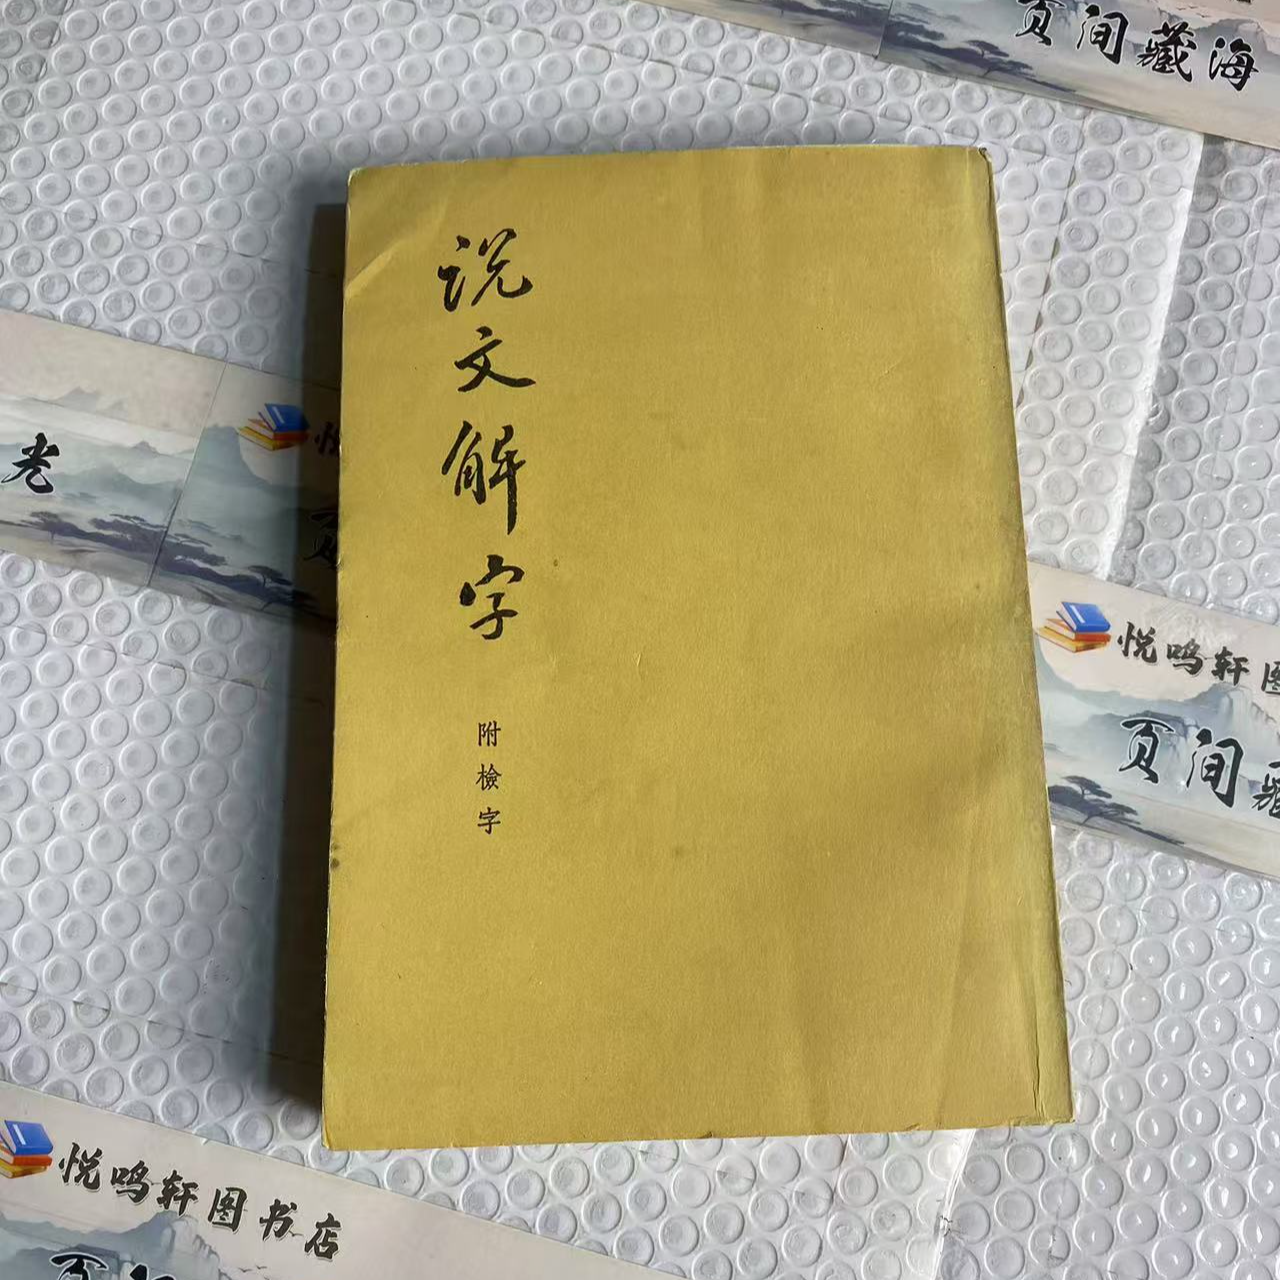 说文解字
附檢字
页间藏海
老
悦鸣轩图
页间藏
悦鸣轩图书店